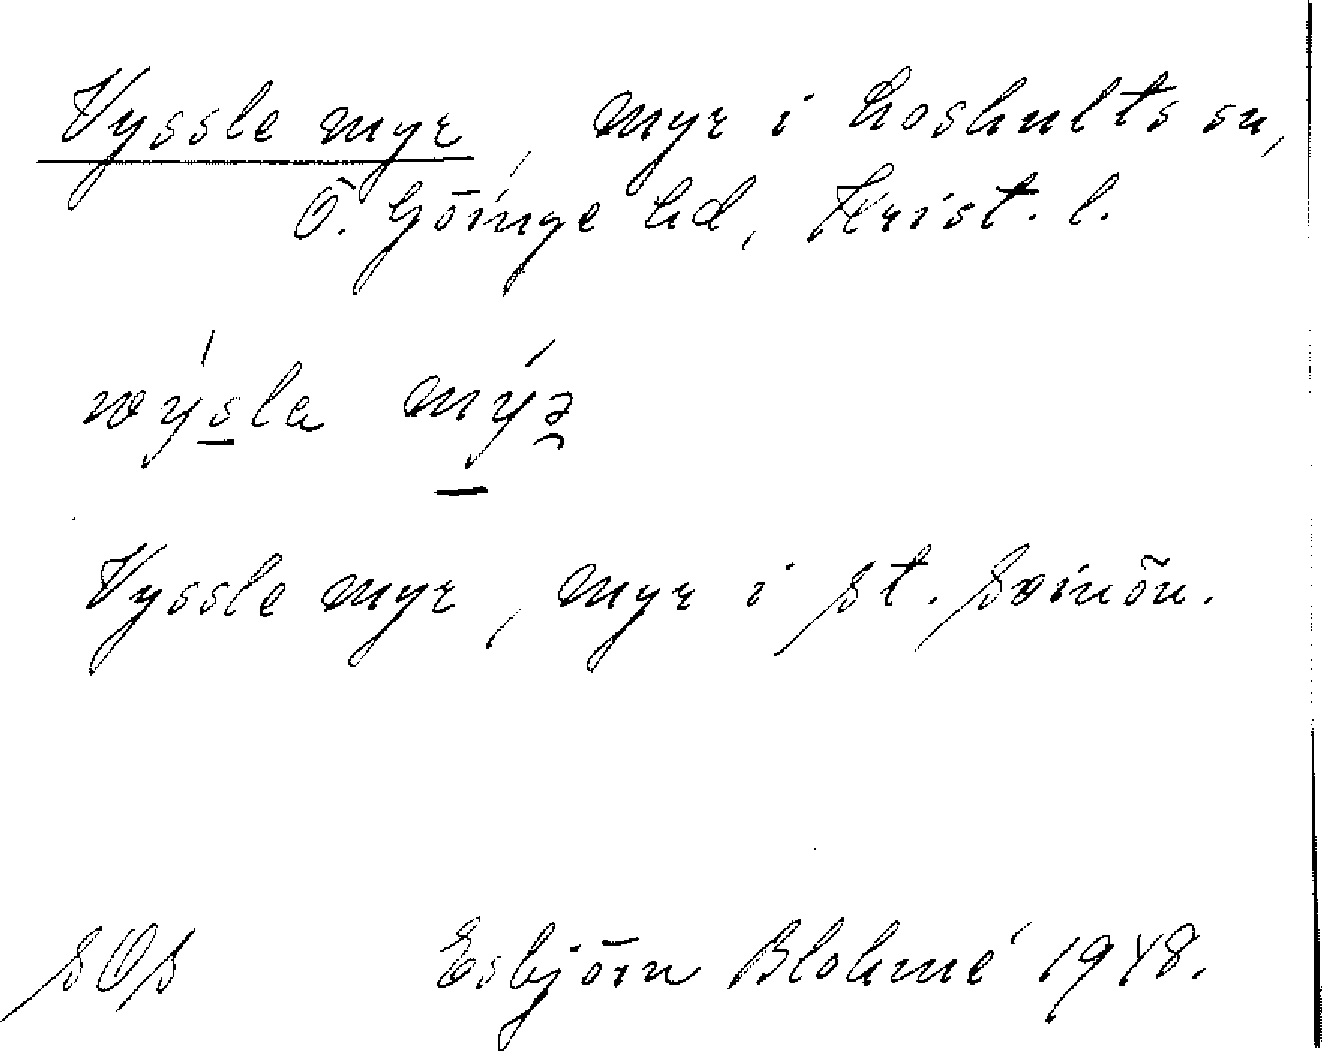 Vyssle myr, myr i Loshults sn,
Ö. Göinge hd, Krist. l.
wýsla mýɜ
Vyssle myr, myr i St. Svinön.
SOS Esbjörn Blohmé 1948.